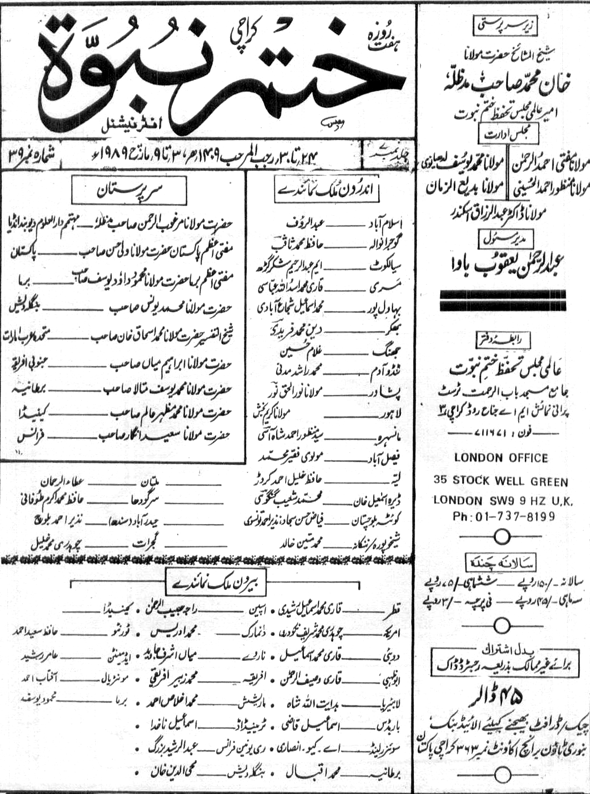 ہفت روزہ
ختم نبوۃ
کراچی
انٹرنیشنل
جلد نمبر ۷
۲۴ تا ۳۰ رجب المرجب ۱۴۰۹ھ، ۳ تا ۹ مارچ ۱۹۸۹ء
شمارہ نمبر ۳۹
زیر سرپرستی
شیخ المشائخ حضرت مولانا
خان محمد صاحب مدظلہ
امیر عالمی مجلس تحفظ ختم نبوت
مجلس ادارت
مولانا مفتی احمد الرحمٰن مولانا محمد یوسف لدھیانوی
مولانا منظور احمد الحسینی مولانا بدیع الزمان
مولانا ڈاکٹر عبدالرزاق اسکندر
مدیر مسئول
عبدالرحمٰن یعقوب باوا
رابطہ دفتر
عالمی مجلس تحفظ ختم نبوت
جامع مسجد باب الرحمت ٹرسٹ
پرانی نمائش ایم اے جناح روڈ کراچی ۳
فون : ۷۱۱۶۷۱
LONDON OFFICE
35 STOCK WELL GREEN
LONDON SW9 9 HZ U.K.
Ph: 01-737-8199
سالانہ چندہ
سالانہ ۱۵۰/- روپے ششماہی ۷۵/- روپے
سہ ماہی ۴۵/- روپے فی پرچہ ۳/- روپے
بدل اشتراک
برائے غیر ممالک بذریعہ رجسٹرڈ ڈاک
۴۵ ڈالر
چیک / ڈرافٹ بھیجنے کیلئے الائیڈ بنک
بنوری ٹاؤن برانچ اکاونٹ نمبر ۳۶۳ کراچی پاکستان
سرپرستان
حضرت مولانا مرغوب الرحمن صاحب مدظلہ مہتمم دارالعلوم دیوبند انڈیا
مفتی اعظم پاکستان حضرت مولانا ولی حسن صاحب پاکستان
مفتی اعظم برما حضرت مولانا محمود داؤد یوسف صاحب برما
حضرت مولانا محمد یونس صاحب بنگلہ دیش
شیخ التفسیر حضرت مولانا محمد اسحاق خان صاحب متحدہ عرب امارات
حضرت مولانا ابراہیم میاں صاحب جنوبی افریقہ
حضرت مولانا محمد یوسف متالا صاحب برطانیہ
حضرت مولانا محمد مظہر عالم صاحب کینیڈا
حضرت مولانا سعید انگار صاحب فرانس
اندرون ملک نمائندے
اسلام آباد عبدالرؤف
گوجرانوالہ حافظ محمد ثاقب
سیالکوٹ ایم عبدالرحیم شکرگڑھ
مری قاری محمد اسداللہ عباسی
بہاول پور محمد اسماعیل شجاع آبادی
بھکر دین محمد فریدی
جھنگ غلام حسین
ٹنڈو آدم محمد راشد مدنی
پشاور مولانا نور الحق نور
لاہور مولانا کریم بخش
مانسہرہ سید منظور احمد شاہ آسی
فیصل آباد مولوی فقیر محمد
لیہ حافظ خلیل احمد کروڑ
ڈیرہ اسمٰعیل خان محمد شعیب گنگوہی
کوئٹہ بلوچستان فیاض حسن سجاد، نذیر احمد تونسوی
شیخوپورہ / ننکانہ محمد متین خالد
ملتان عطاء الرحمان
سرگودھا حافظ محمد اکرم طوفانی
حیدرآباد سندھ نذیر احمد بلوچ
گجرات چوہدری محمد خلیل
بیرون ملک نمائندے
قطر قاری محمد اسمٰعیل شیدی • اسپین راجہ حبیب الرحمٰن • کینیڈا
امریکہ چوہدری محمد شریف نکودری • ڈنمارک محمد ادریس • ٹورنٹو حافظ سعید احمد
دوبئی قاری محمد اسمٰعیل • ناروے میاں اشرف جاوید • ایڈمنٹن عامر رشید
ابوظہبی قاری وصیف الرحمٰن • افریقہ محمد زبیر افریقی • مونٹریال آفتاب احمد
لائبیریا ہدایت اللہ شاہ • ماریشش محمد اخلاص احمد • برما محمود یوسف
باربڈس اسمٰعیل قاضی • ٹرینیڈاڈ اسمٰعیل ناخدا
سوئٹزرلینڈ اے ۔ کیو ۔ انصاری • ری یونین فرانس عبدالرشید بزرگ
برطانیہ محمد اقبال • بنگلہ دیش محی الدین خان